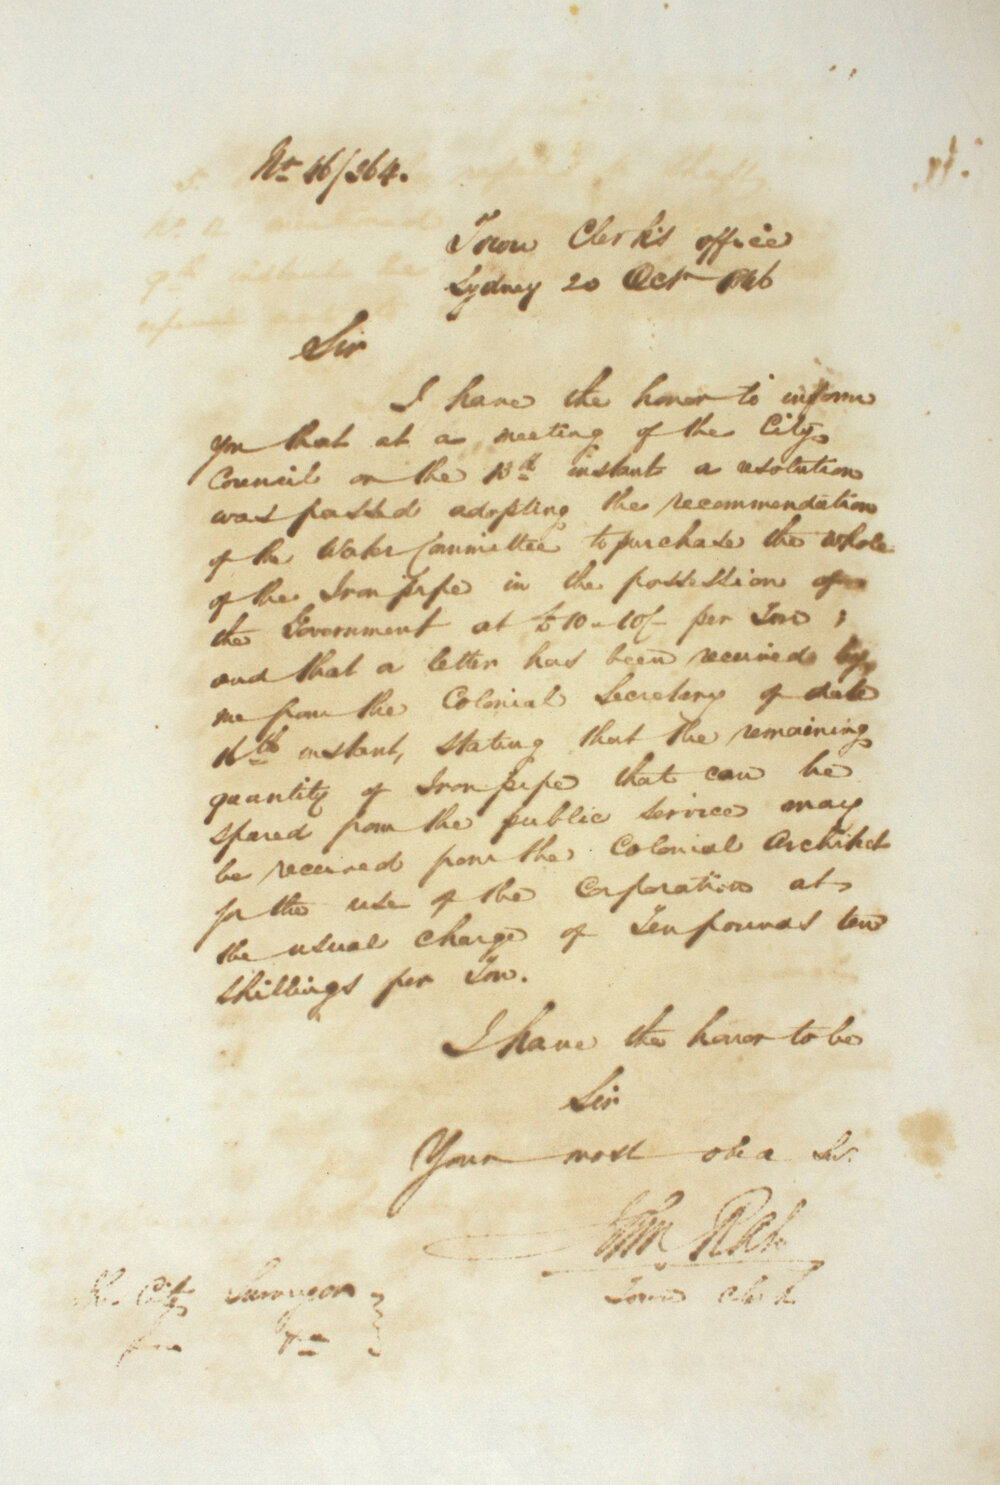 No 46/264.
Town Clerk's office
Sydney 20 Octr 1846
Sir
I have the honor to inform
you that at a meeting of the City
Council on the 13th instant a resolution
was passed adopting the recommendation
of the Water Committee to purchase the whole
of the Iron pipe in the possession of
the Government at £10-10/- per Ton ;
and that a letter has been received by
me from the Colonial Secretary of date
16th instant, stating that the remaining
quantity of Iron pipe that can be
spared from the public service may
be received from the Colonial Architect
for the use of the Corporation at
the usual charge of Ten pounds ten
shillings per Ton.
I have the honor to be
Sir
Your most obed Sr.
Town Clerk
The City Surveyor